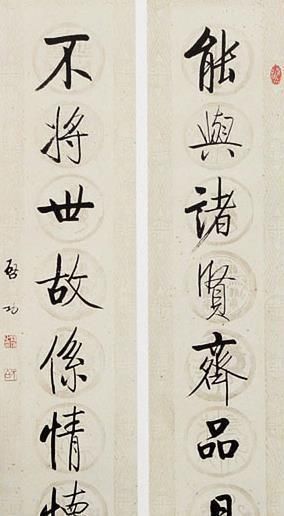 能與諸賢齊品
不將世故係情
啓功